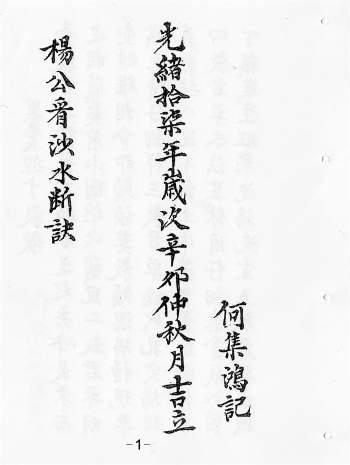 何集鴻記
光緒拾柒年歲次辛卯仲秋月吉立
楊公看沙水断訣
-1-